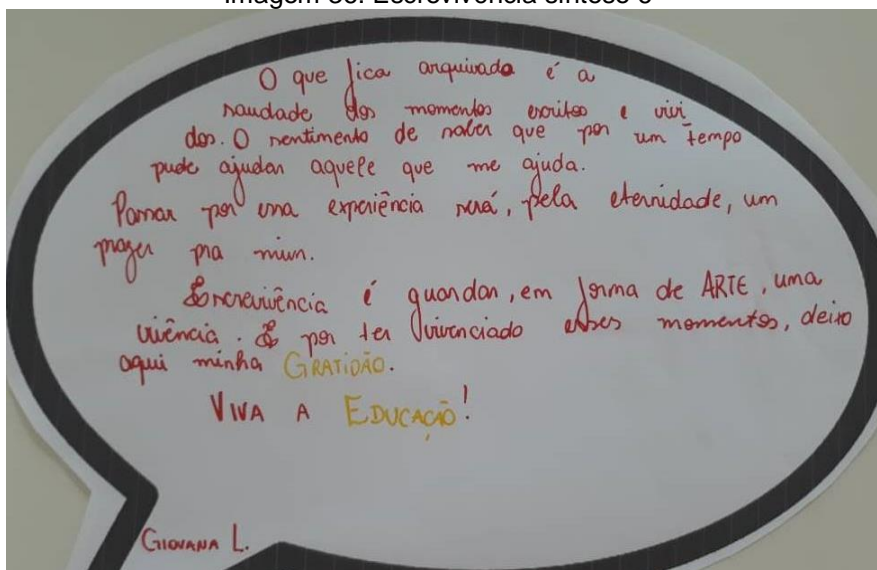 O que fica arquivado é a
saudade dos momentos escritos e vivi_
dos. O sentimento de saber que por um tempo
pude ajudar aquele que me ajuda.
Passar por essa experiência será, pela eternidade, um
prazer pra mim.
Escrevivência é guardar, em forma de ARTE, uma
vivência. E por ter vivenciado esses momentos, deixo
aqui minha GRATIDÃO.
VIVA A EDUCAÇÃO!
GIOVANA L.